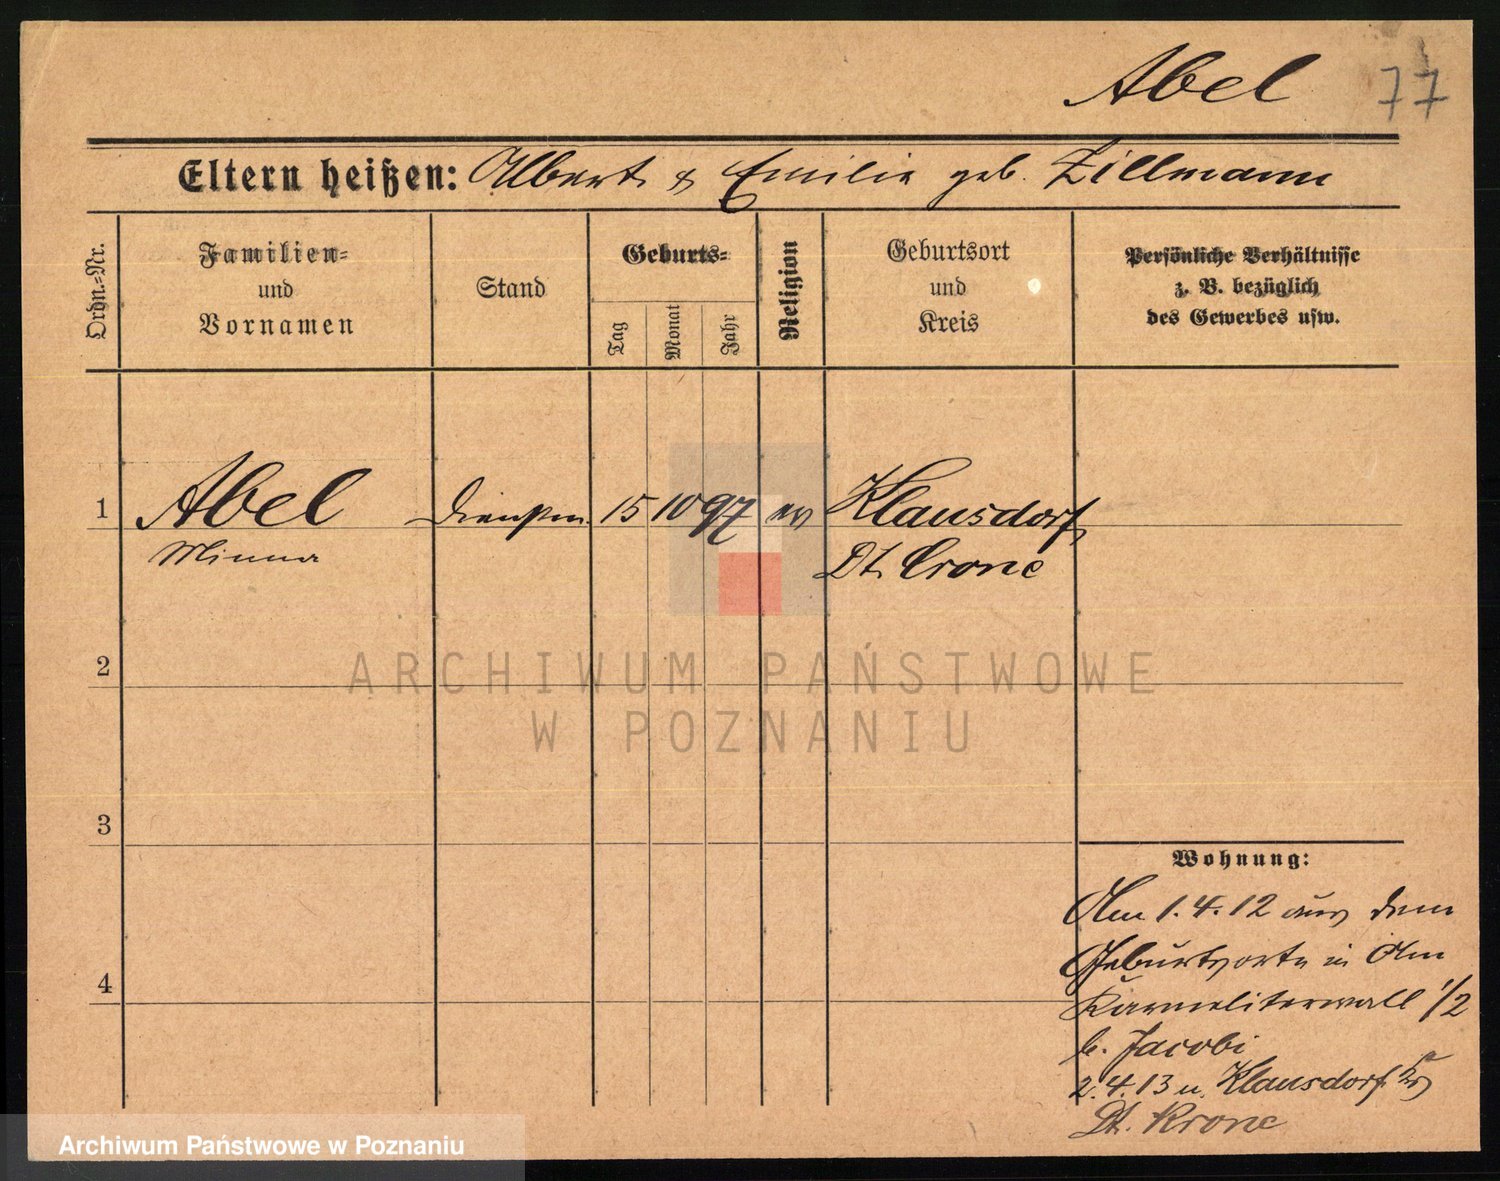 Abel 77
Eltern heißen: Albert & Emilie geb. Zillmann
Ordn.-Nr.
Familien-
und
Vornamen
Stand
Geburts-
Tag
Monat
Jahr
Religion
Geburtsort
und
Kreis
Persönliche Verhältnisse
z. B. bezüglich
des Gewerbes usw.
1 Abel Dienstm. 15 10 97 ev Klausdorf
Minna Dt. Crone
2
ARCHIWUM PAŃSTWOWE
W POZNANIU
3
Wohnung:
Am 1.4.12 aus dem
Geburtsorte in
4
Karmeliterwall 1/2
b. Jacobi
2.4.13 n. Klausdorf Kr
Dt. Krone
Archiwum Państwowe w Poznaniu